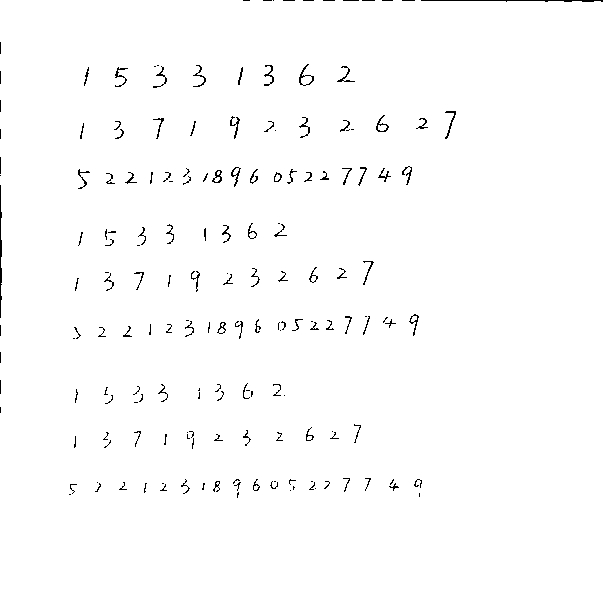 1 5 3 3 1 3 6 2
1 3 7 1 9 2 3 2 6 2 7
5 2 2 1 2 3 1 8 9 6 0 5 2 2 7 7 4 9
1 5 3 3 1 3 6 2
1 3 7 1 9 2 3 2 6 2 7
5 2 2 1 2 3 1 8 9 6 0 5 2 2 7 7 4 9
1 5 3 3 1 3 6 2
1 3 7 1 9 2 3 2 6 2 7
5 2 2 1 2 3 1 8 9 6 0 5 2 2 7 7 4 9